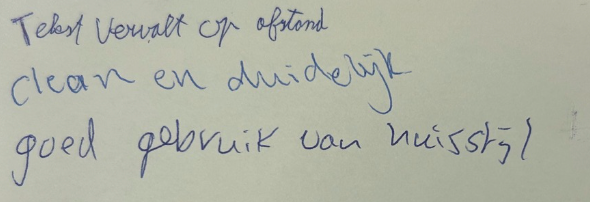 Tekst Vervalt op afstand
clean en duidelijk
goed gebruik van huisstijl